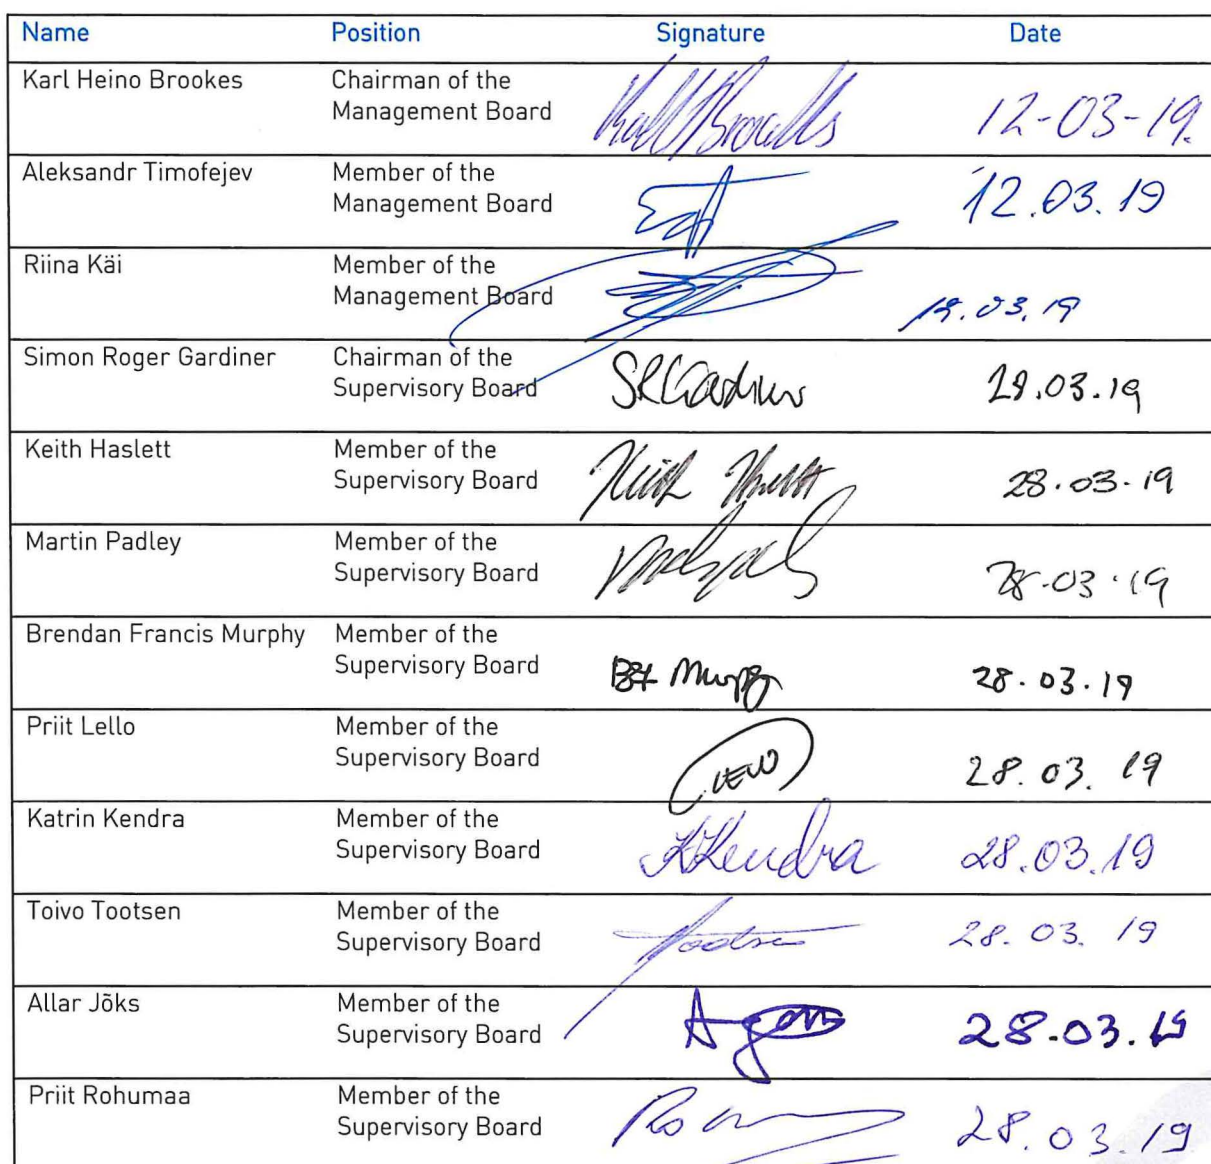 Name Position Signature Date
Karl Heino Brookes Chairman of the
Management Board 12-03-19.
Aleksandr Timofejev Member of the
Management Board 12.03.19
Riina Käi Member of the
Management Board 12.03.19
Simon Roger Gardiner Chairman of the
Supervisory Board SRGardiner 28.03.19
Keith Haslett Member of the
Supervisory Board 28.03.19
Martin Padley Member of the
Supervisory Board 28.03.19
Brendan Francis Murphy Member of the
Supervisory Board BF Murphy 28.03.19
Priit Lello Member of the
Supervisory Board 28.03.19
Katrin Kendra Member of the
Supervisory Board KKendra 28.03.19
Toivo Tootsen Member of the
Supervisory Board 28.03.19
Allar Jõks Member of the
Supervisory Board 28.03.19
Priit Rohumaa Member of the
Supervisory Board 28.03.19